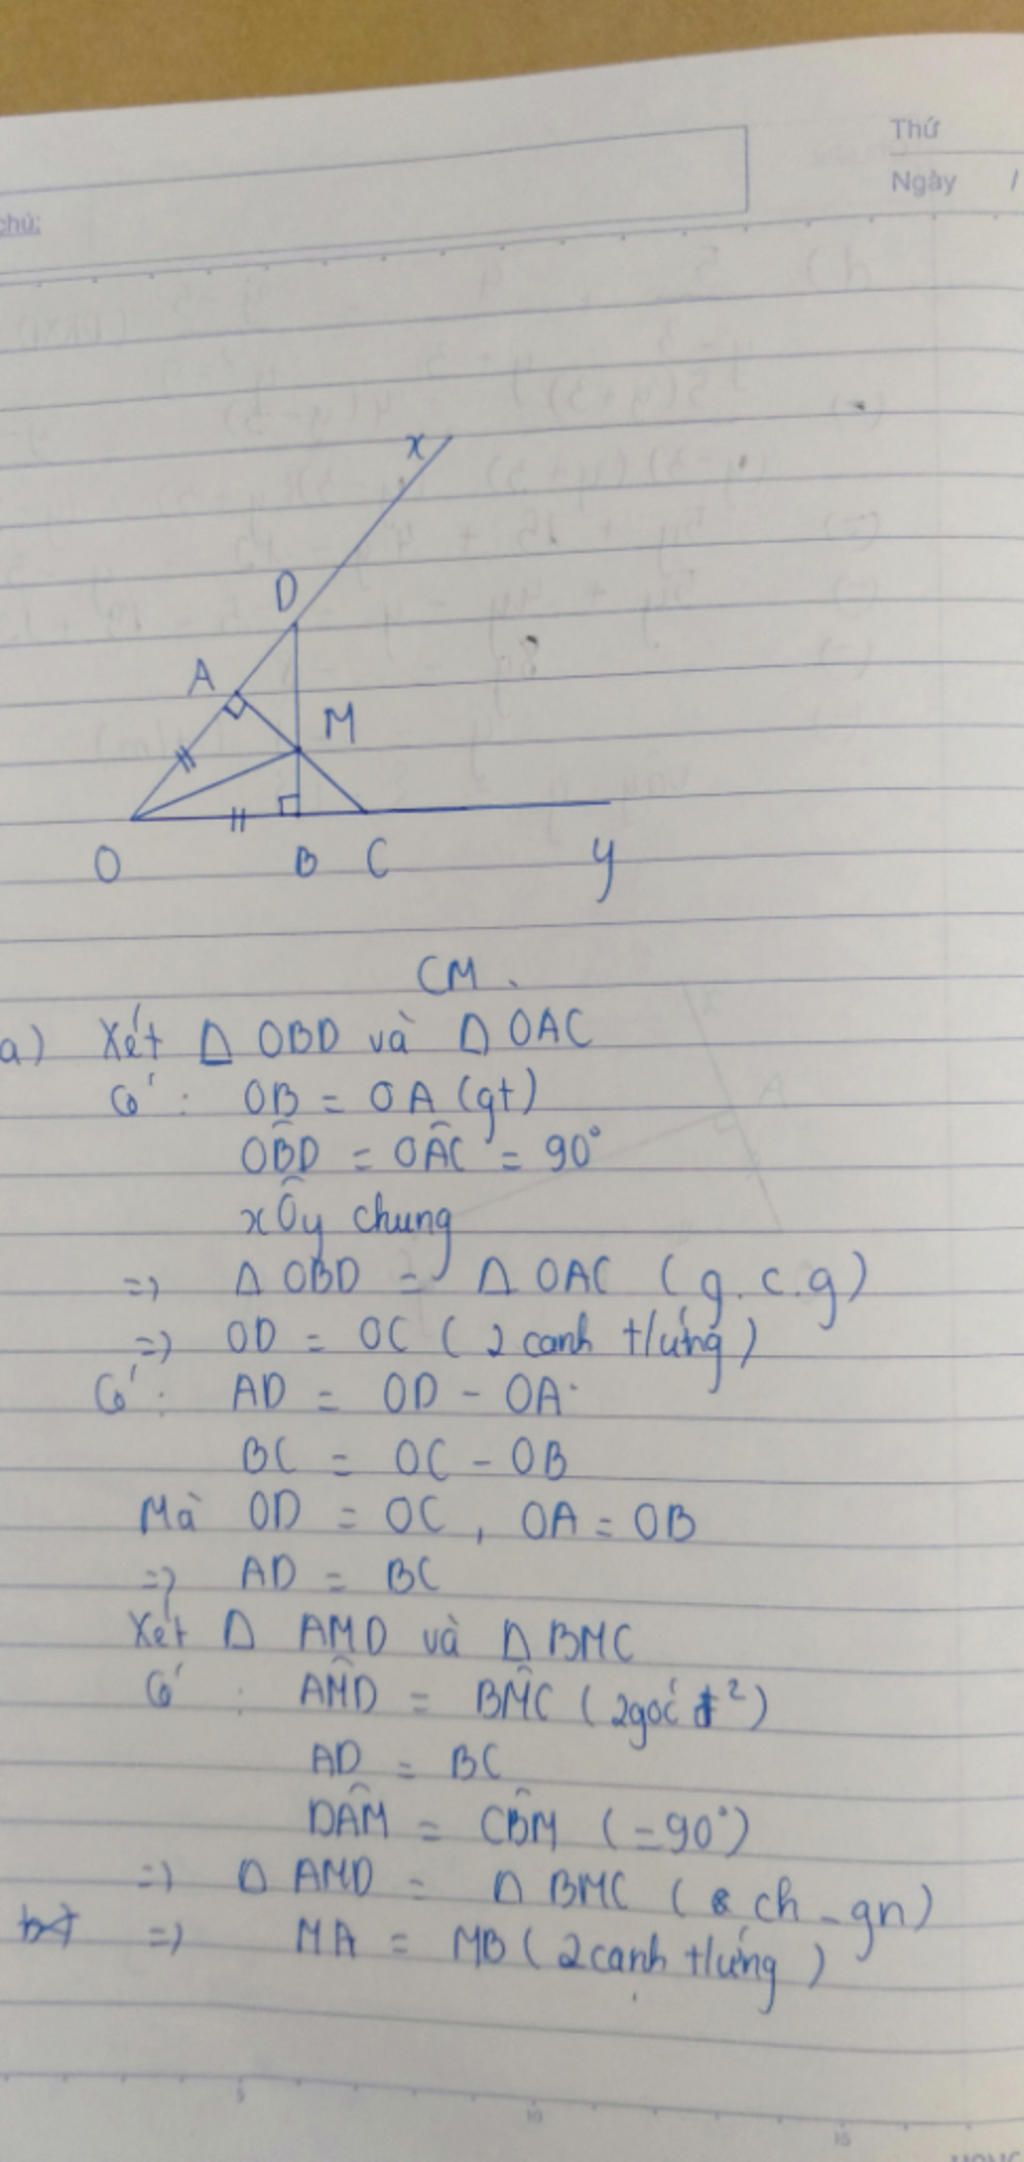 Thứ
Ngày /
chú:
x
D
A
M
O
B C
y
CM.
a) Xét Δ OBD và Δ OAC
Có : OB = OA (gt)
OB̂D = OÂC = 90°
xÔy chung
=> Δ OBD = Δ OAC (g.c.g)
=> OD = OC (2 canh t/ứng)
Có : AD = OD - OA
BC = OC - OB
Mà OD = OC , OA = OB
=> AD = BC
Xét Δ AMD và Δ BMC
Có : AM̂D = BM̂C (2góc đ²)
AD = BC
DÂM = CB̂M (=90°)
=> Δ AMD = Δ BMC (ch - gn)
=> MA = MB (2canh t/ứng)
5
10
15